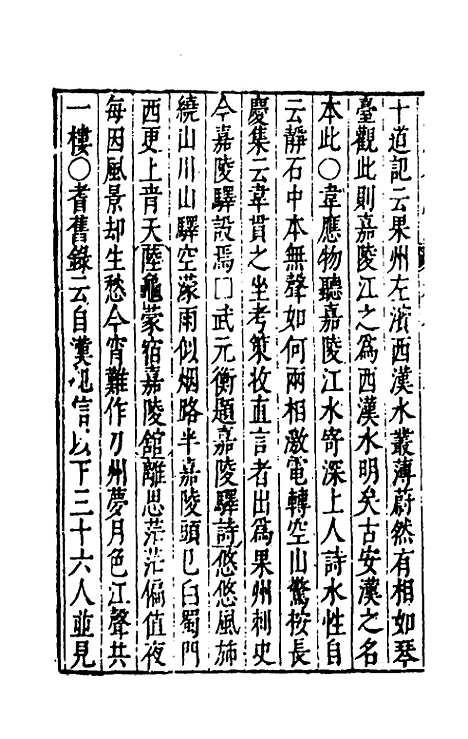 十道記云果州左濱西漢水叢薄蔚然有相如琴
臺觀此則嘉陵江之爲西漢水明矣古安漢之名
本此○韋應物聽嘉陵江水寄深上人詩水性自
云靜石中本無聲如何兩相激雷轉空山驚按長
慶集云韋貫之坐考策牧直言者出爲果州刺史
今嘉陵驛設焉□武元衡題嘉陵驛詩悠悠風斾
繞山川山驛空濛雨似烟路半嘉陵頭已白蜀門
西更上青天陸龜蒙宿嘉陵舘離思茫茫偏值夜
每因風景却生愁今宵難作刀州夢月色江聲共
一樓○耆舊錄云自漢紀信以下三十六人並見